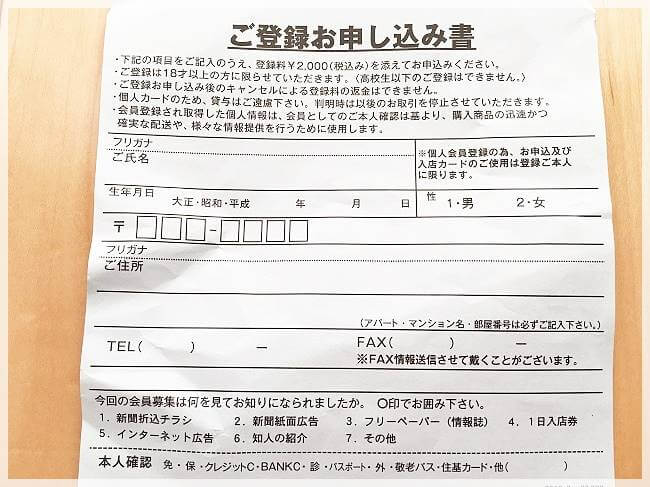 ご登録お申し込み書
・下記の項目をご記入のうえ、登録料￥2,000(税込み)を添えてお申込みください。
・ご登録は18才以上の方に限らせていただきます。〈高校生以下のご登録はできません。〉
・ご登録お申し込み後のキャンセルによる登録料の返金はできません。
・個人カードのため、貸与はご遠慮下さい。判明時は以後のお取引を停止させていただきます。
・会員登録され取得した個人情報は、会員としてのご本人確認は基より、購入商品の迅速かつ
確実な配送や、様々な情報提供を行うために使用します。
フリガナ
ご氏名
※個人会員登録の為、お申込及び
入店カードのご使用は登録ご本人
に限ります。
生年月日 大正・昭和・平成 年 月 日
性 1・男 2・女
〒 □□□-□□□□
フリガナ
ご住所
(アパート・マンション名・部屋番号は必ずご記入下さい。)
TEL( ) ー
FAX( ) ー
※FAX情報送信させて戴くことがございます。
今回の会員募集は何を見てお知りになられましたか。〇印でお囲み下さい。
1．新聞折込チラシ 2．新聞紙面広告 3．フリーペーパー（情報誌） 4．1日入店券
5．インターネット広告 6．知人の紹介 7．その他
本人確認 免・保・クレジットC・BANKC・診・パスポート・外・敬老パス・住基カード・他( )